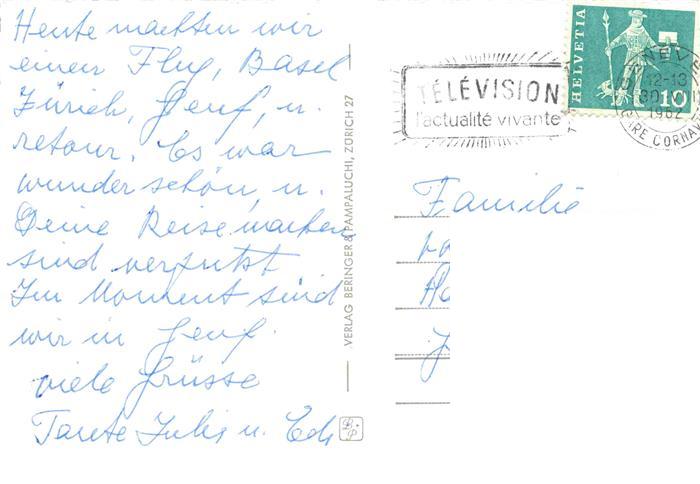 Heute machten wir
einen Flug, Basel
Zürich, Genf, u.
retour. Es war
wunderschön, u.
Deine Reisemarken
sind verputzt
Im Moment sind
wir in Genf.
viele Grüsse
Tante Julie u. Edi
VERLAG BERINGER & PAMPALUCHI, ZÜRICH 27
B.P
TÉLÉVISION
l'actualité vivante
HELVETIA
10
GENÈVE
12-13
1962
CORNAVIN
Familie